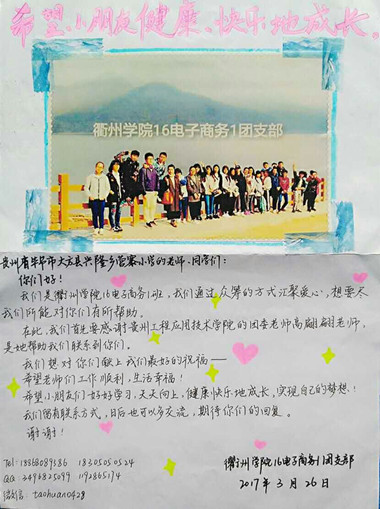 希望小朋友健康、快乐地成长。
衢州学院16电子商务1团支部
贵州省毕节市大方县兴隆乡营寨小学的老师、同学们：
你们好！
我们是衢州学院16电子商务1班，我们通过众筹的方式汇聚爱心，想要尽
我们所能对你们有所帮助。
在此，我们首先要感谢贵州工程应用技术学院的团委老师高翩翩老师，
是她帮助我们联系到你们。
我们想对你们献上我们最好的祝福——
希望老师们工作顺利，生活幸福！
希望小朋友们好好学习，天天向上，健康快乐地成长，实现自己的梦想！
我们留有联系方式，日后也可以多交流，期待你们的回复。
谢谢！
Tel：18868089586 18305050524
QQ：2496825099 1192865174
微信：taohuan0428
衢州学院16电子商务1团支部
2017年3月26日